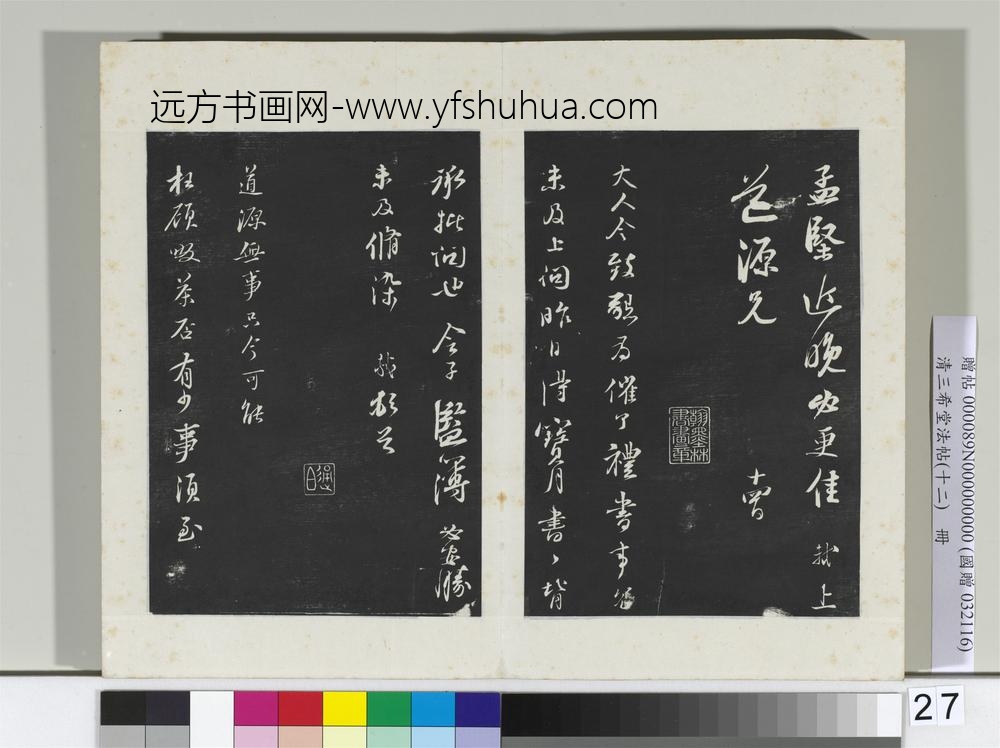 远方书画网-www.yfshuhua.com
孟堅近晚必更佳 軾上
道源兄 十四
大人令致懇為催了禮書事
未及上問昨日得寶月書、背
承批問也 令子監簿必安勝
未及脩染 軾頓首
道源無事只今可能
枉顧啜茶否有少事須至
翰墨林書畫章
贈帖 0000089N000000000 (國贈 032116)
清三希堂法帖(十二) 冊
27